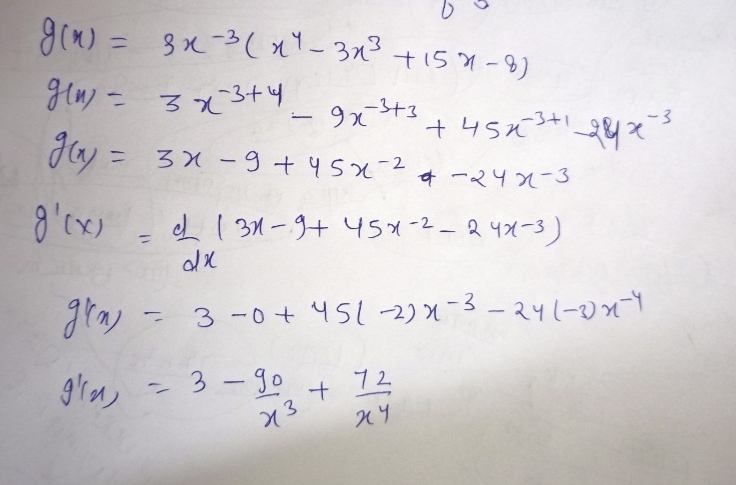 g(x) = 3x⁻³(x⁴ - 3x³ + 15x - 8)
g(x) = 3x⁻³⁺⁴ - 9x⁻³⁺³ + 45x⁻³⁺¹ - 24x⁻³
g(x) = 3x - 9 + 45x⁻² - 24x⁻³
g'(x) = d/dx (3x - 9 + 45x⁻² - 24x⁻³)
g'(x) = 3 - 0 + 45(-2)x⁻³ - 24(-3)x⁻⁴
g'(x) = 3 - 90/x³ + 72/x⁴